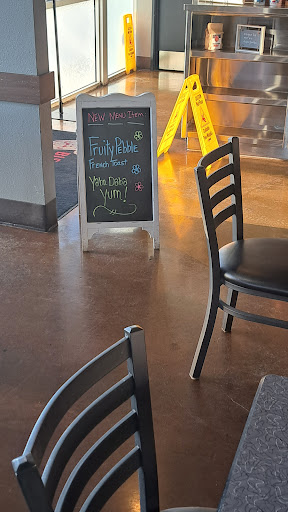 NEW Menu Item
Fruity Pebble
French Toast
Yaba Daba
Yum!